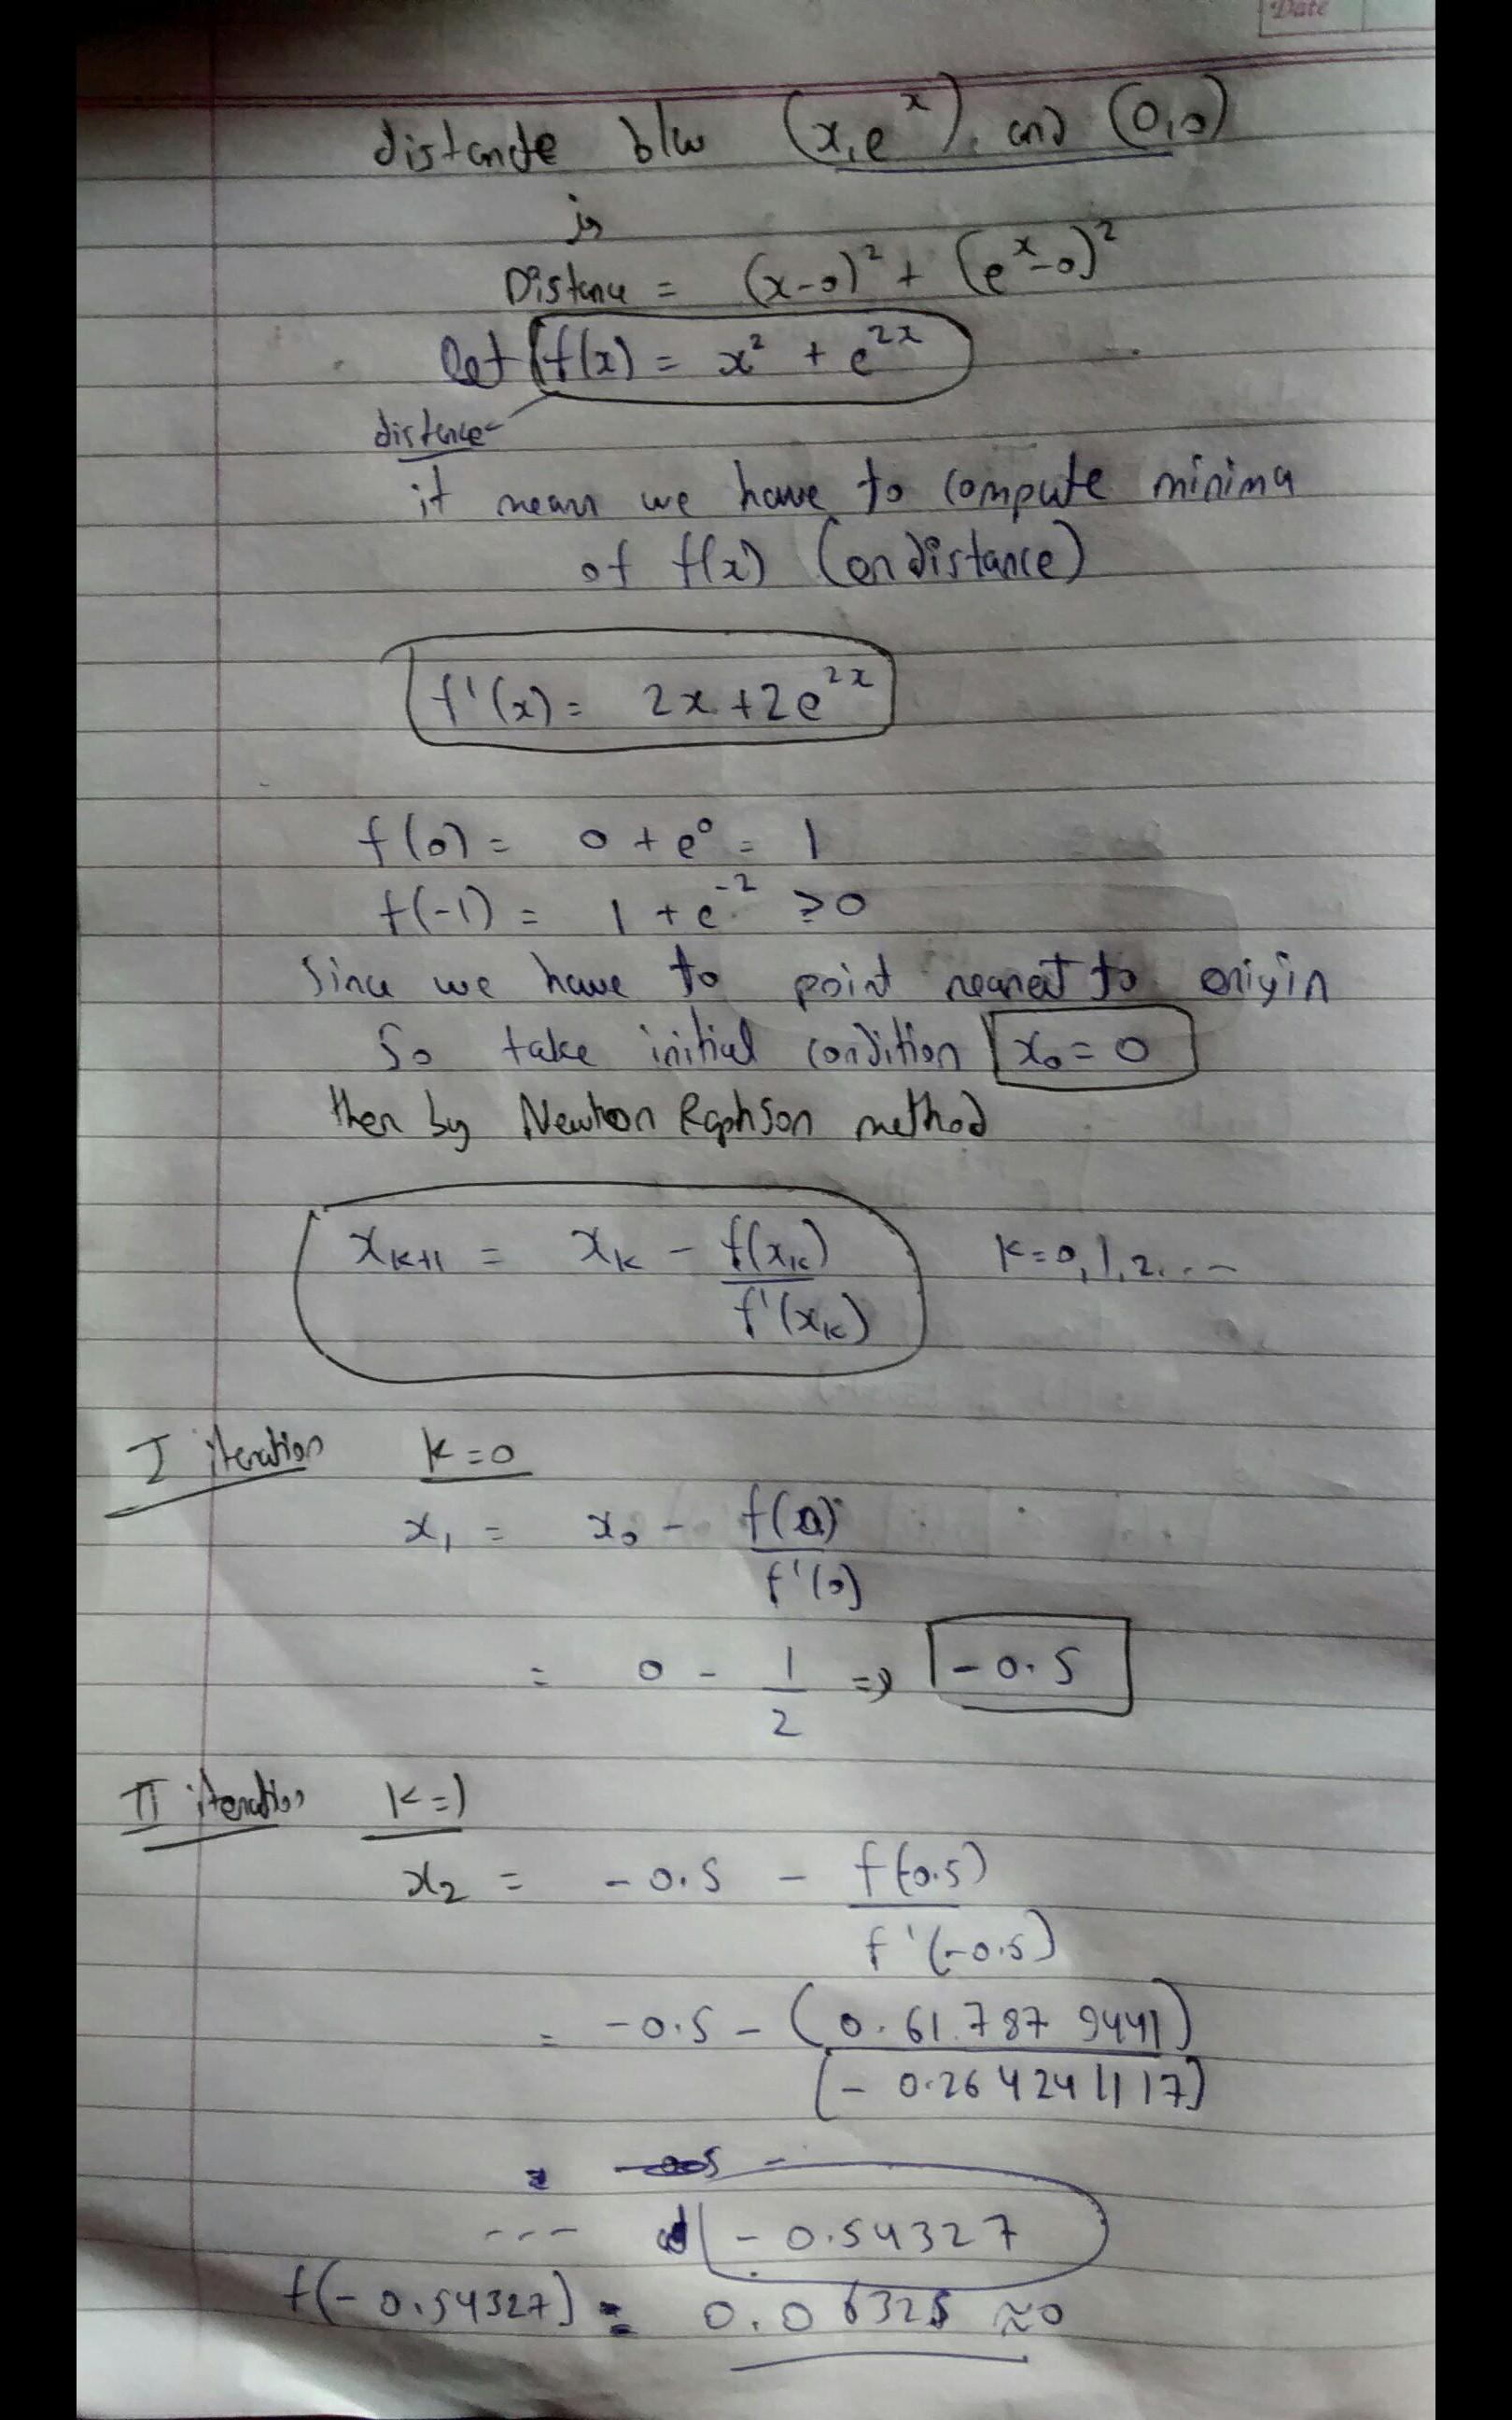 Date
distance b/w (x, e^x), and (0,0)
is
Distance = (x-0)² + (e^x-0)²
let f(x) = x² + e^2x
distance
it mean we have to compute minima
of f(x) (or distance)
f'(x) = 2x + 2e^2x
f(0) = 0 + e⁰ = 1
f(-1) = 1 + e^-2 ≥ 0
Since we have to point nearest to origin
So take initial condition x₀ = 0
then by Newton Raphson method
x_{k+1} = x_k - f(x_k)/f'(x_k) K = 0, 1, 2, ...
I iteration K = 0
x₁ = x₀ - f(0)/f'(0)
= 0 - 1/2 ⇒ -0.5
II iteration K = 1
x₂ = -0.5 - f(-0.5)/f'(-0.5)
= -0.5 - (0.617879441)/(-0.264241117)
--- -0.54327
f(-0.54327) = 0.06325 ≈ 0